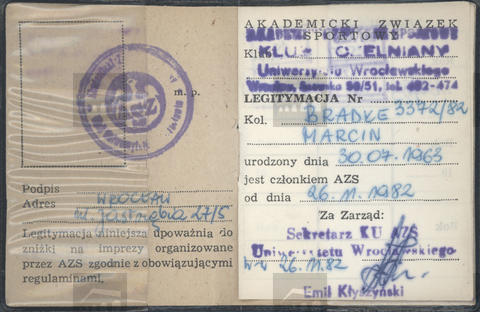 m. p.
Podpis
Adres WROCŁAW
ul. Jastrzębia 27/5
Legitymacja niniejsza upoważnia do
zniżki na imprezy organizowane
przez AZS zgodnie z obowiązującymi
regulaminami.
AKADEMICKI ZWIĄZEK
SPORTOWY
KLUB UCZELNIANY
Uniwersytetu Wrocławskiego
LEGITYMACJA Nr
3372/82
Kol. BRADKE
MARCIN
urodzony dnia 30.07.1963
jest członkiem AZS
od dnia 26.11.1982
Za Zarząd:
Sekretarz KU AZS
Uniwersytetu Wrocławskiego
26.11.82
Emil Kłyszyński